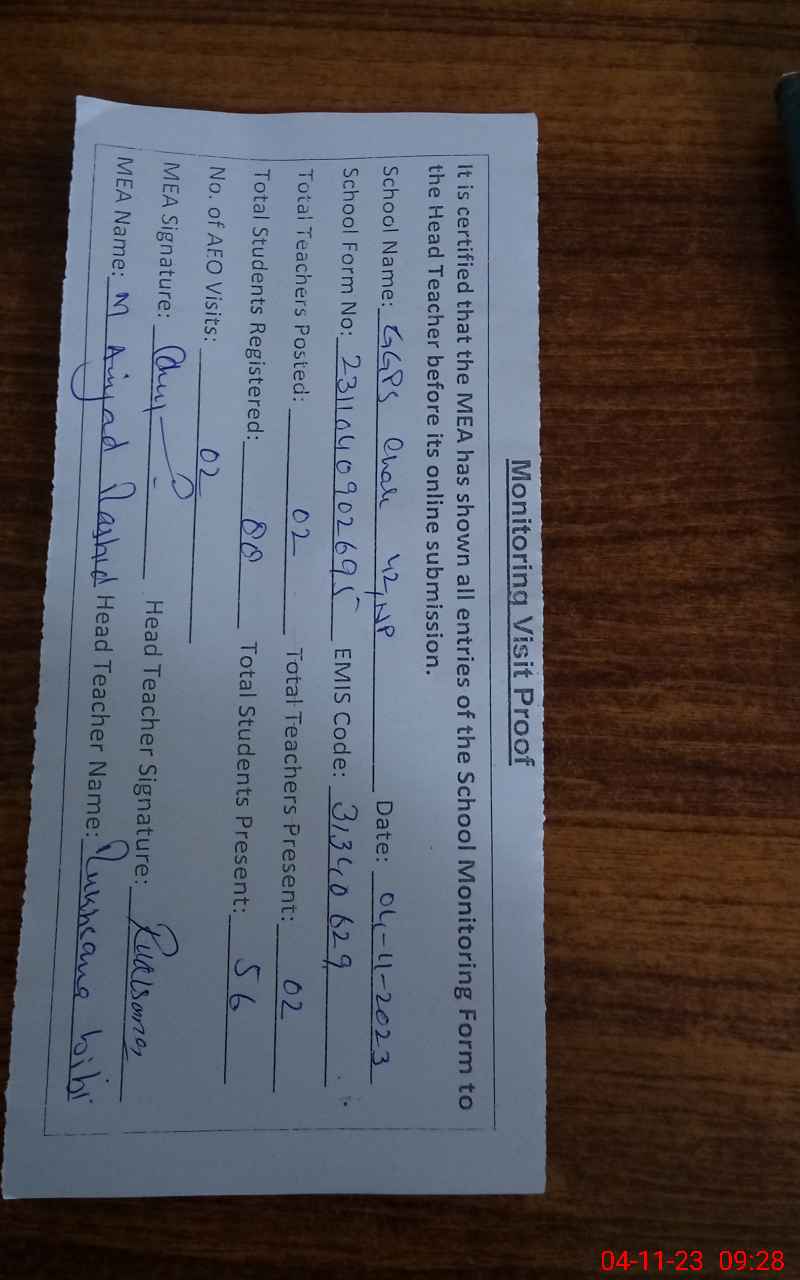 Monitoring Visit Proof
It is certified that the MEA has shown all entries of the School Monitoring Form to
the Head Teacher before its online submission.
School Name: GGPS Chak 42/NP Date: 04-11-2023
School Form No: 2311040902695 EMIS Code: 31340629
Total Teachers Posted: 02 Total Teachers Present: 02
Total Students Registered: 80 Total Students Present: 56
No. of AEO Visits: 02
MEA Signature: Head Teacher Signature:
MEA Name: M Amjad Rashid Head Teacher Name: bibi
04-11-23 09:28